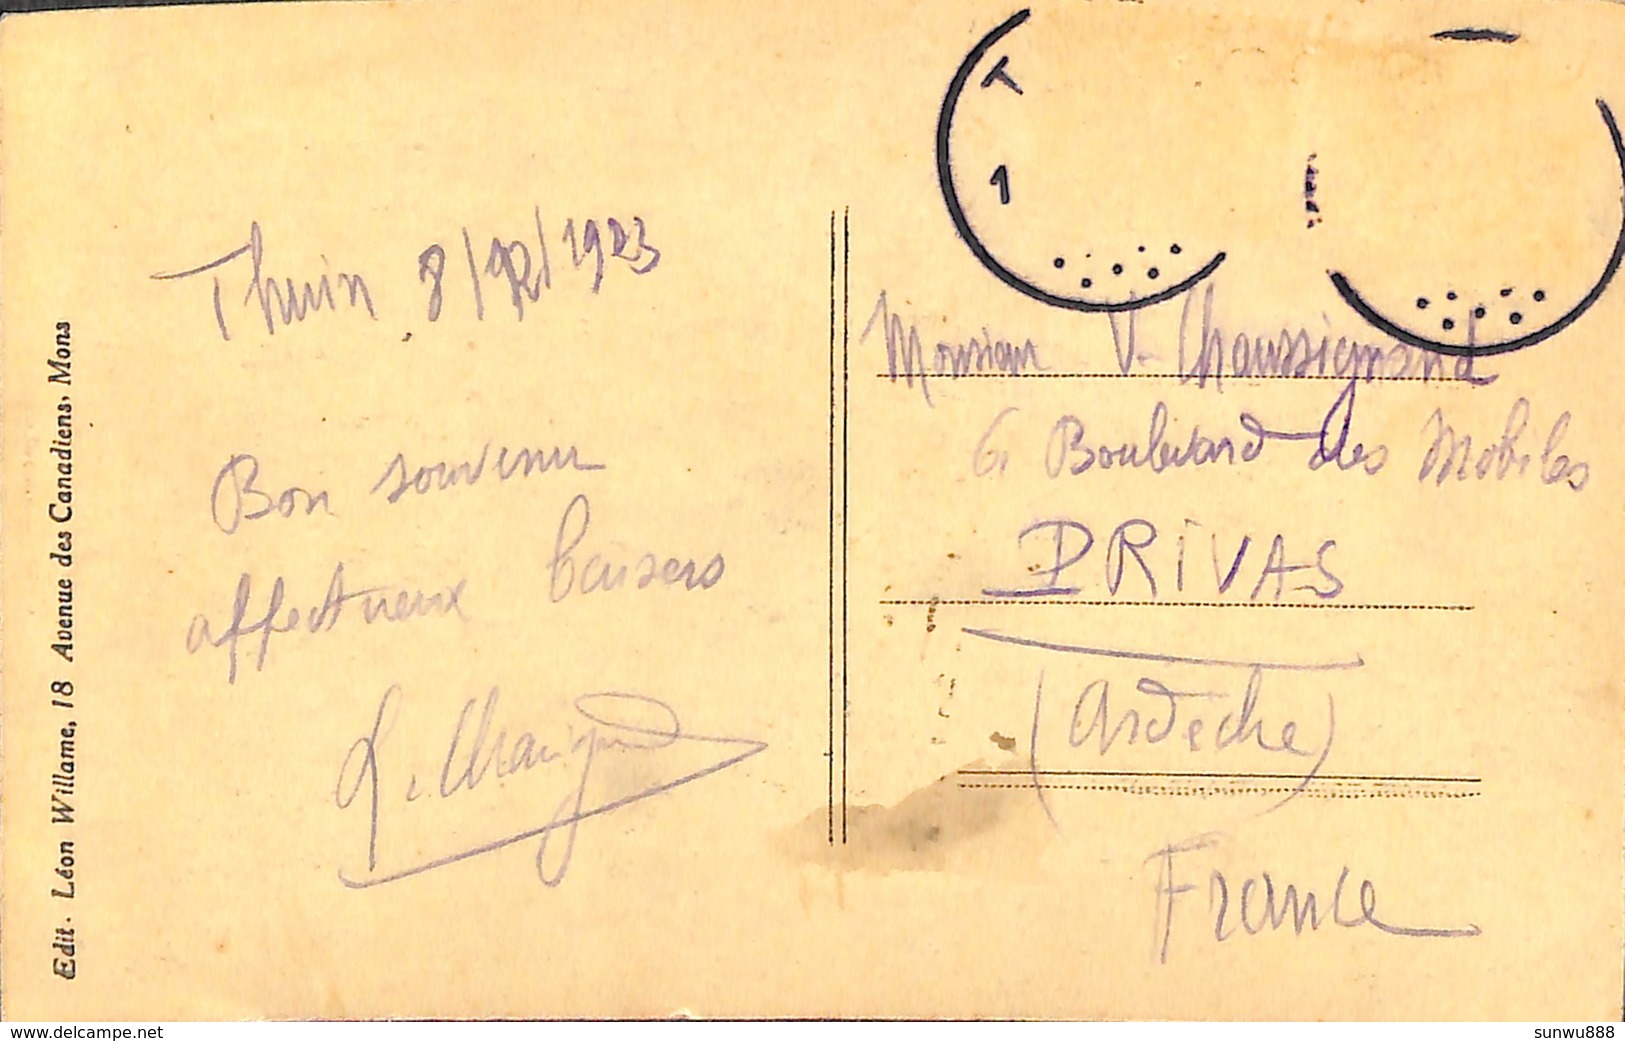 Edit. Léon Willame, 18 Avenue des Canadiens, Mons
Thuin 8/12/1923
Bon souvenir
affectueux baisers
T
1
Monsieur V. Chaussignand
6 Boulevard des Mobiles
PRIVAS
(Ardèche)
France
www.delcampe.net
sunwu888